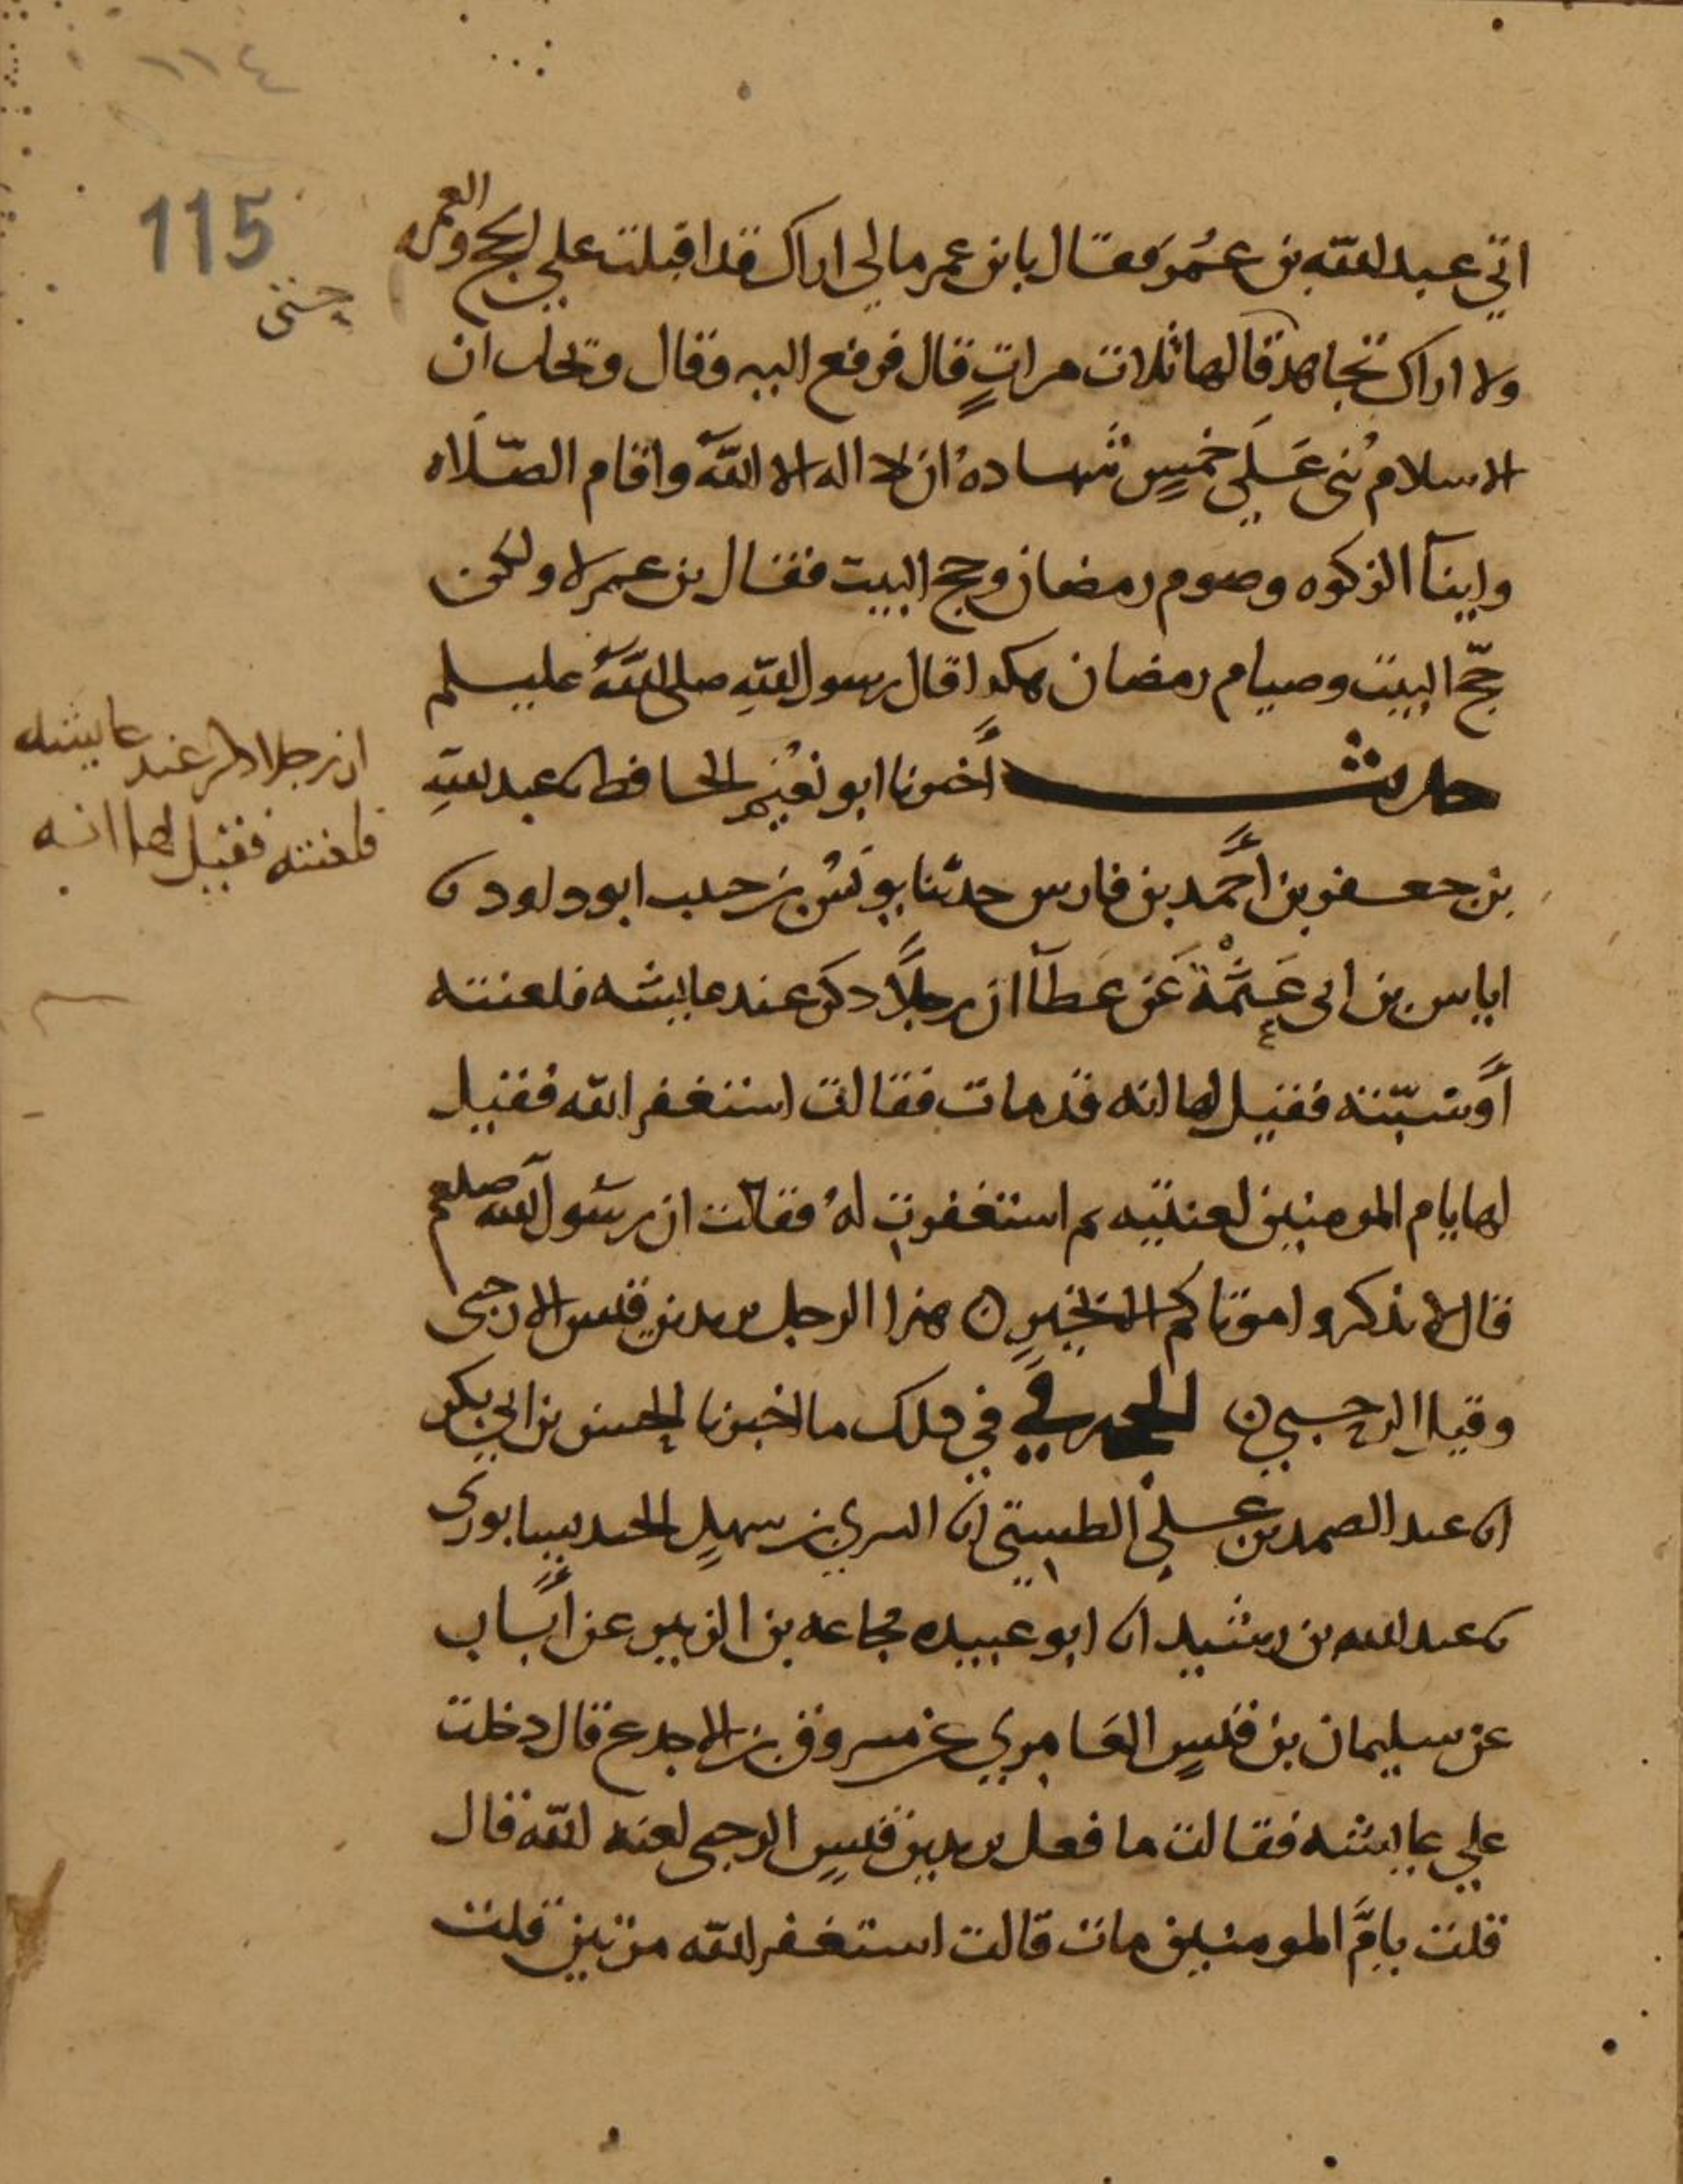 ١١٤
115
اتي عبد الله بن عُمَر فقال يابن عمر مالي اراك قد اقبلت علي الحج والعمره
ولا اراك تجاهد قالها ثلاث مراتٍ قال فرفع اليه وقال ويحك ان
الاسلام بُنى عَلَي خمسٍ شهادة ان لا اله الا الله واقام الصلاه
وايتآ الزكوه وصوم رمضان وحج البيت فقال بن عمر لا ولكن
حجّ البيت وصيام رمضان هكدا قال رسول اللهِ صلى اللهُ عليسلم
حديث أخبرنا ابو نُعَيْم الحافظ نا عبد اللهِ
بن جعفر بن أحمد بن فارس حدثنا يونس بن حبيب ابو داود نا
اياس بن ابى عَيثمَة عَن عَطآ ان رجلًا دكر عند عايشه فلعنته
أو سبّته فقيل لها انه قد مات فقالت استغفر الله فقيل
لها يام المومنين لعنتيه ثم استغفرت لهُ فقالت ان رسول الله صلعم
قال لا تذكروا موتاكم الا بخيرٍ ن هذا الرجل يزيد بن قيس الارحبى
وقيل الرحبي ن الحجه في في دلك ما اخبرنا الحسن بن ابي بكر
انا عبد الصمد بن علي الطستي نا السري بن سهلٍ الجنديسابورى
نا عبد الله بن رشيد نا ابو عبيده مجاعه بن الزبير عن أبان
عن سليمان بن قيسٍ العَامري عن مسروق بن الاجدع قال دخلت
علي عايشه فقالت ما فعل يزيد بن قيسٍ الرحبى لعنه الله قال
قلت يامَّ المومنين مات قالت استغفر الله مرتين قلت
ان رجلا دكر عند عايشه
فلعنته فقيل لها انه